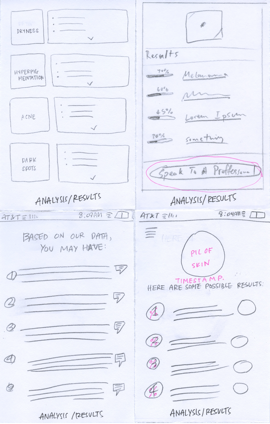 DRYNESS
HYPERPIG
MENTATION
ACNE
DARK
SPOTS
ANALYSIS/RESULTS
Results
Melanoma
65%
Lorem Ipsum
something
Speak To A Professional
ANALYSIS/RESULTS
AT&T
BASED ON OUR DATA,
YOU MAY HAVE:
1
2
3
4
5
ANALYSIS/RESULTS
AT&T
PIC OF
SKIN
TIMESTAMP
HERE ARE SOME POSSIBLE RESULTS:
1
2
3
4
ANALYSIS/RESULTS